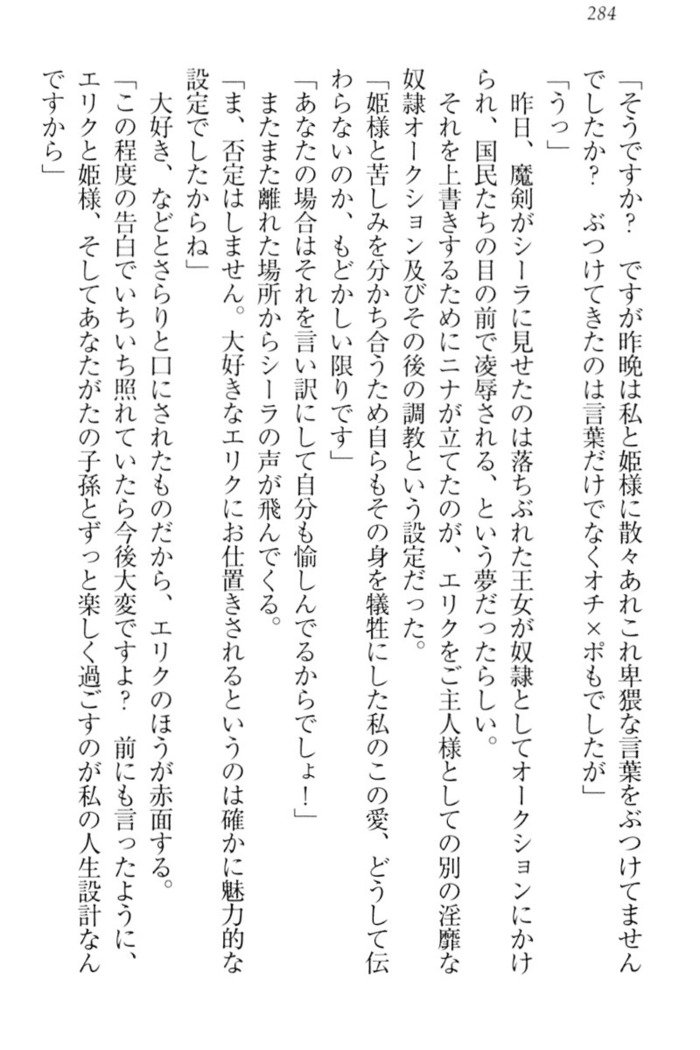 284
「そうですか？　ですが昨晩は私と姫様に散々あれこれ卑猥な言葉をぶつけてません
でしたか？　ぶつけてきたのは言葉だけでなくオチ×ポもでしたが」
「うっ」
　昨日、魔剣がシーラに見せたのは落ちぶれた王女が奴隷としてオークションにかけ
られ、国民たちの目の前で凌辱される、という夢だったらしい。
　それを上書きするためにニナが立てたのが、エリクをご主人様としての別の淫靡な
奴隷オークション及びその後の調教という設定だった。
「姫様と苦しみを分かち合うため自らもその身を犠牲にした私のこの愛、どうして伝
わらないのか、もどかしい限りです」
「あなたの場合はそれを言い訳にして自分も愉しんでるからでしょ！」
　またまた離れた場所からシーラの声が飛んでくる。
「ま、否定はしません。大好きなエリクにお仕置きされるというのは確かに魅力的な
設定でしたからね」
　大好き、などとさらりと口にされたものだから、エリクのほうが赤面する。
「この程度の告白でいちいち照れていたら今後大変ですよ？　前にも言ったように、
エリクと姫様、そしてあなたがたの子孫とずっと楽しく過ごすのが私の人生設計なん
ですから」